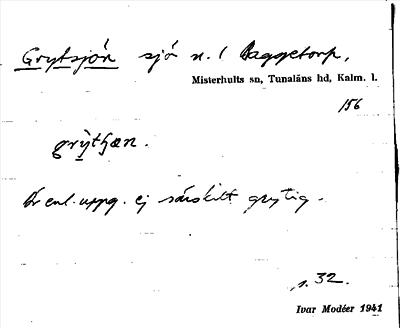 Grytsjön sjö n. / Baggetorp,
Misterhults sn, Tunaläns hd, Kalm. l.
156
grỳtʃɷn.
Är enl. uppg. ej särskilt grytig.
s. 32.
Ivar Modéer 1941